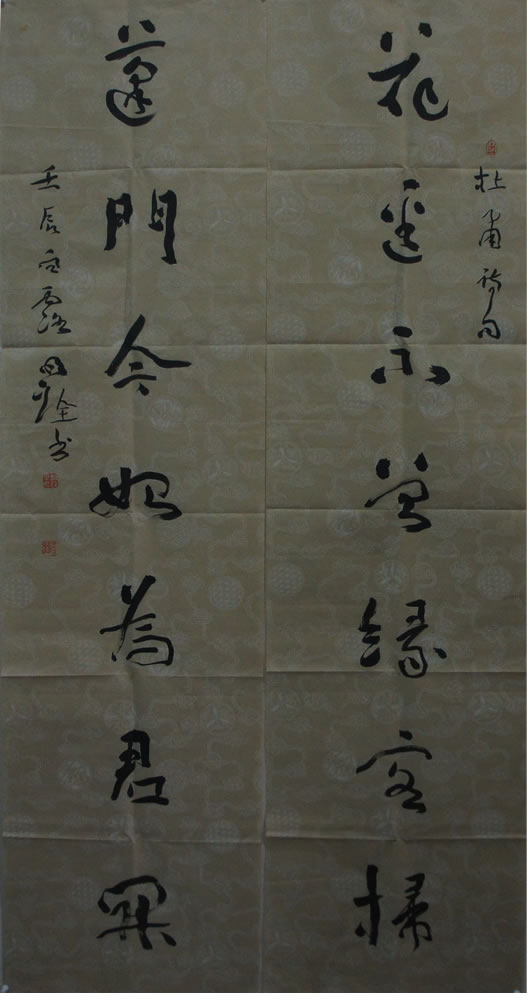 杜甫詩句
花逕不曾緣客掃
蓬門今始為君開
壬辰白露